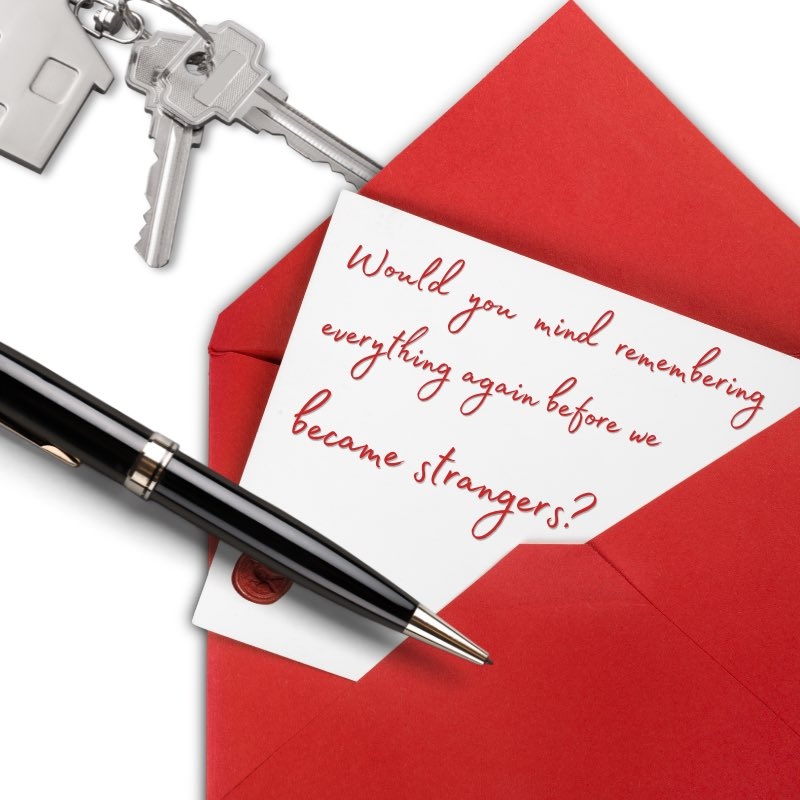 Would you mind remembering
everything again before we
became strangers?